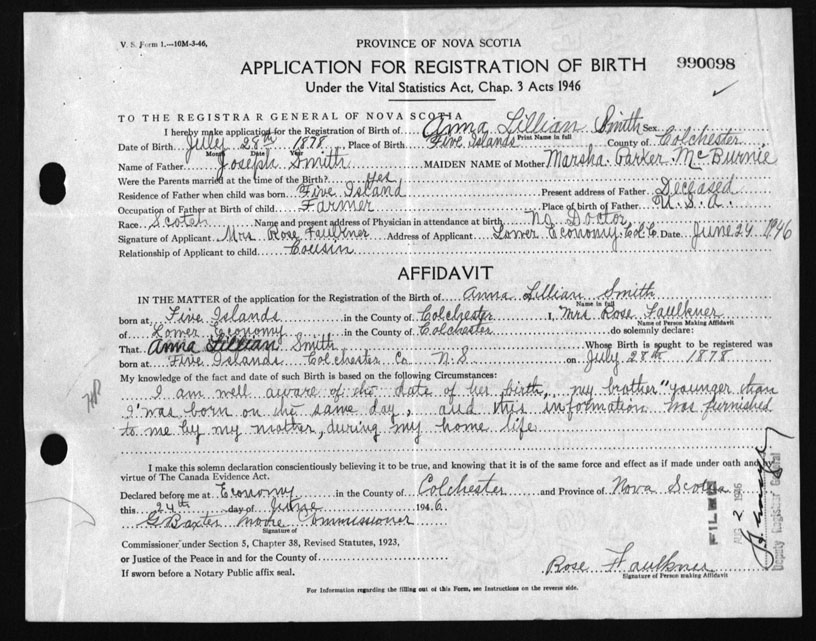 V. S. Form 1.—10M-3-46.
PROVINCE OF NOVA SCOTIA
APPLICATION FOR REGISTRATION OF BIRTH 990098
Under the Vital Statistics Act, Chap. 3 Acts 1946
TO THE REGISTRAR GENERAL OF NOVA SCOTIA
I hereby make application for the Registration of Birth of Anna Lillian Smith Sex
Print Name in full
Date of Birth July 28th 1878 Place of Birth Five Islands County of Colchester
Month Date Year
Name of Father Joseph Smith MAIDEN NAME of Mother Marsha Parker McBurnie
Were the Parents married at the time of the Birth? Yes
Residence of Father when child was born Five Island Present address of Father Deceased
Occupation of Father at Birth of child Farmer Place of birth of Father U.S.A.
Race Scotch Name and present address of Physician in attendance at birth No Doctor
Signature of Applicant Mrs Rose Faulkner Address of Applicant Lower Economy Col. C. Date June 24 1946
Relationship of Applicant to child Cousin
AFFIDAVIT
IN THE MATTER of the application for the Registration of the Birth of Anna Lillian Smith
Name in full
born at Five Islands in the County of Colchester I, Mrs Rose Faulkner
Name of Person Making Affidavit
of Lower Economy in the County of Colchester do solemnly declare:
That Anna Lillian Smith Whose Birth is sought to be registered was
born at Five Islands Colchester Co N.S on July 28th 1878
My knowledge of the fact and date of such Birth is based on the following Circumstances:
I am well aware of the date of her birth, my brother "younger than
I" was born on the same day, and this information was furnished
to me by my mother, during my home life
I make this solemn declaration conscientiously believing it to be true, and knowing that it is of the same force and effect as if made under oath and
virtue of The Canada Evidence Act.
Declared before me at Economy in the County of Colchester and Province of Nova Scotia
this 24th day of June 1946
G Baxter Moore Commissioner
Signature of
Commissioner under Section 5, Chapter 38, Revised Statutes, 1923,
or Justice of the Peace in and for the County of
If sworn before a Notary Public affix seal.
Rose Faulkner
Signature of Person making Affidavit
For Information regarding the filling out of this Form, see Instructions on the reverse side.
FILED
2 1946
Deputy Registrar General